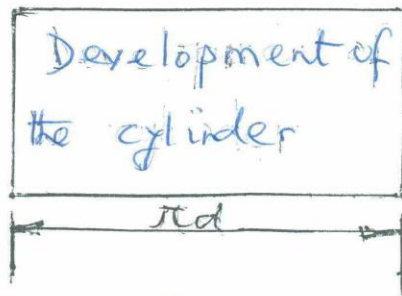 Development of
the cylinder
πd